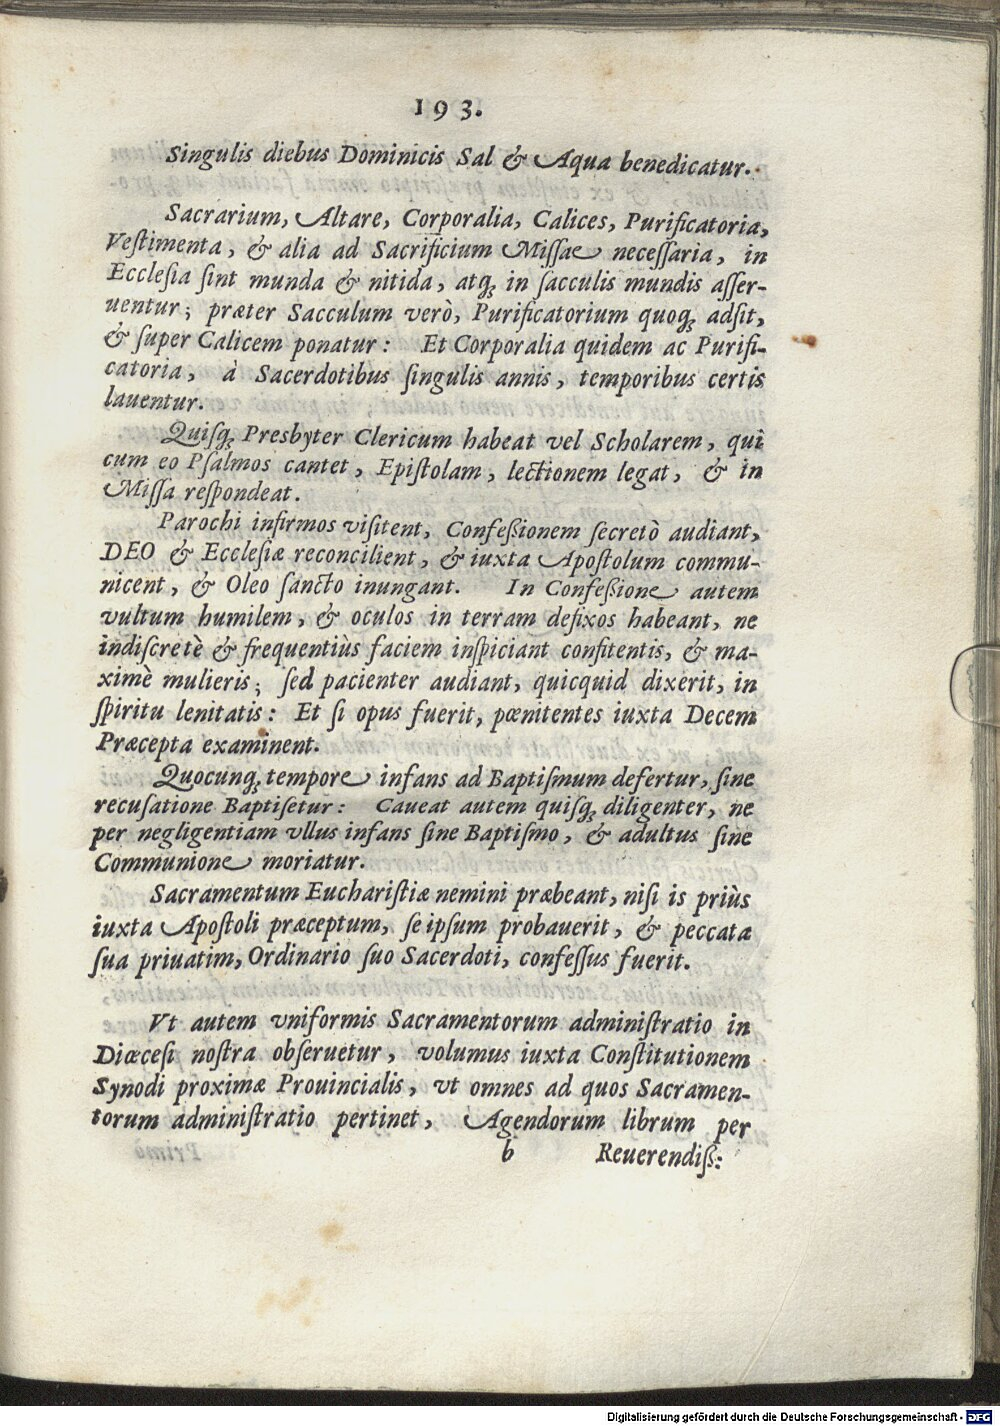 193.
Singulis diebus Dominicis Sal & Aqua benedicatur.
Sacrarium, Altare, Corporalia, Calices, Purificatoria,
Veſtimenta, & alia ad Sacrificium Miſſae neceſſaria, in
Eccleſia ſint munda & nitida, atq; in ſacculis mundis aſſer-
uentur; præter Sacculum verò, Purificatorium quoq; adſit,
& ſuper Calicem ponatur: Et Corporalia quidem ac Purifi-
catoria, à Sacerdotibus ſingulis annis, temporibus certis
lauentur.
Quiſq; Presbyter Clericum habeat vel Scholarem, qui
cum eo Pſalmos cantet, Epiſtolam, lectionem legat, & in
Miſſa reſpondeat.
Parochi infirmos viſitent, Confeßionem ſecretò audiant,
DEO & Eccleſiæ reconcilient, & iuxta Apoſtolum commu-
nicent, & Oleo ſancto inungant. In Confeßione autem
vultum humilem, & oculos in terram defixos habeant, ne
indiſcretè & frequentiùs faciem inſpiciant confitentis, & ma-
ximè mulieris; ſed pacienter audiant, quicquid dixerit, in
ſpiritu lenitatis: Et ſi opus fuerit, pœnitentes iuxta Decem
Præcepta examinent.
Quocunq; tempore infans ad Baptiſmum defertur, ſine
recuſatione Baptiſetur: Caueat autem quiſq; diligenter, ne
per negligentiam vllus infans ſine Baptiſmo, & adultus ſine
Communione moriatur.
Sacramentum Euchariſtiæ nemini præbeant, niſi is priùs
iuxta Apoſtoli præceptum, ſe ipſum probauerit, & peccata
ſua priuatim, Ordinario ſuo Sacerdoti, confeſſus fuerit.
Vt autem vniformis Sacramentorum adminiſtratio in
Diœceſi noſtra obſeruetur, volumus iuxta Conſtitutionem
Synodi proximæ Prouincialis, vt omnes ad quos Sacramen-
torum adminiſtratio pertinet, Agendorum librum per
b Reuerendiß:
Digitalisierung gefördert durch die Deutsche Forschungsgemeinschaft - DFG